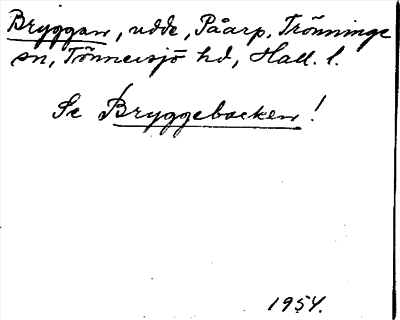 Bryggan, udde, Påarp, Trönninge
sn, Tönnersjö hd, Hall. l.
Se Bryggebacken!
1954.